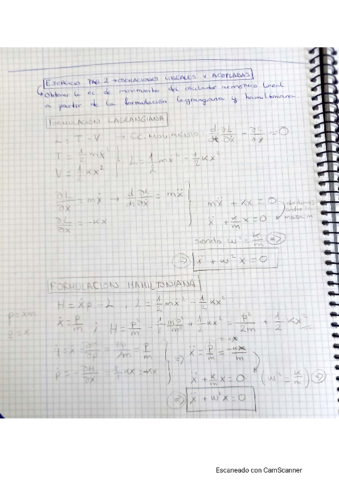 EJERCICIO TAD 2 → OSCILACIONES LINEALES Y ACOPLADAS
↳ Obtener la ec. de movimiento del oscilador armónico lineal
a partir de la formulación lagrangiana y hamiltoniana
FORMULACIÓN LAGRANGIANA
L = T - V → EC. MOVIMIENTO: d/dt ∂L/∂ẋ - ∂L/∂x = 0
T = 1/2 mẋ²
V = 1/2 kx²
L = 1/2 mẋ² - 1/2 kx²
∂L/∂ẋ = mẋ → d/dt ∂L/∂ẋ = mẍ
∂L/∂x = -kx
mẍ + kx = 0
ẍ + k/m x = 0
siendo ω² = k/m ⇒
⇒ ẍ + ω²x = 0
FORMULACIÓN HAMILTONIANA
H = ẋp - L, L = 1/2 mẋ² - 1/2 kx²
p = ẋm
ẋ = p/m
; H = p²/m - 1/2 m p²/m² + 1/2 kx² = p²/2m + 1/2 kx²
ẋ = ∂H/∂p = p/m
⇒ ẍ = ṗ/m = -kx/m
ẍ + k/m x = 0 (ω² = k/m) ⇒
⇒ ẍ + ω²x = 0
Escaneado con CamScanner